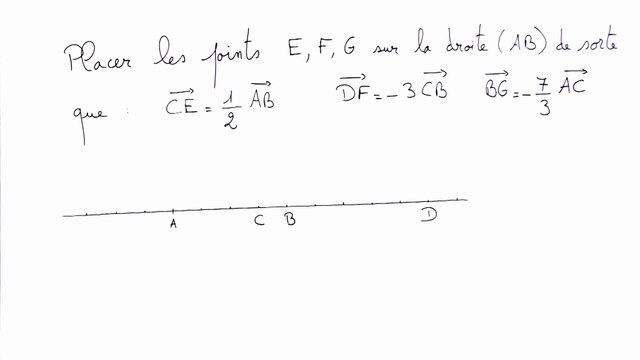 Placer les points E, F, G sur la droite (AB) de sorte
que : $\overrightarrow{CE} = \frac{1}{2} \overrightarrow{AB}$ $\overrightarrow{DF} = -3 \overrightarrow{CB}$ $\overrightarrow{BG} = -\frac{7}{3} \overrightarrow{AC}$
A C B D